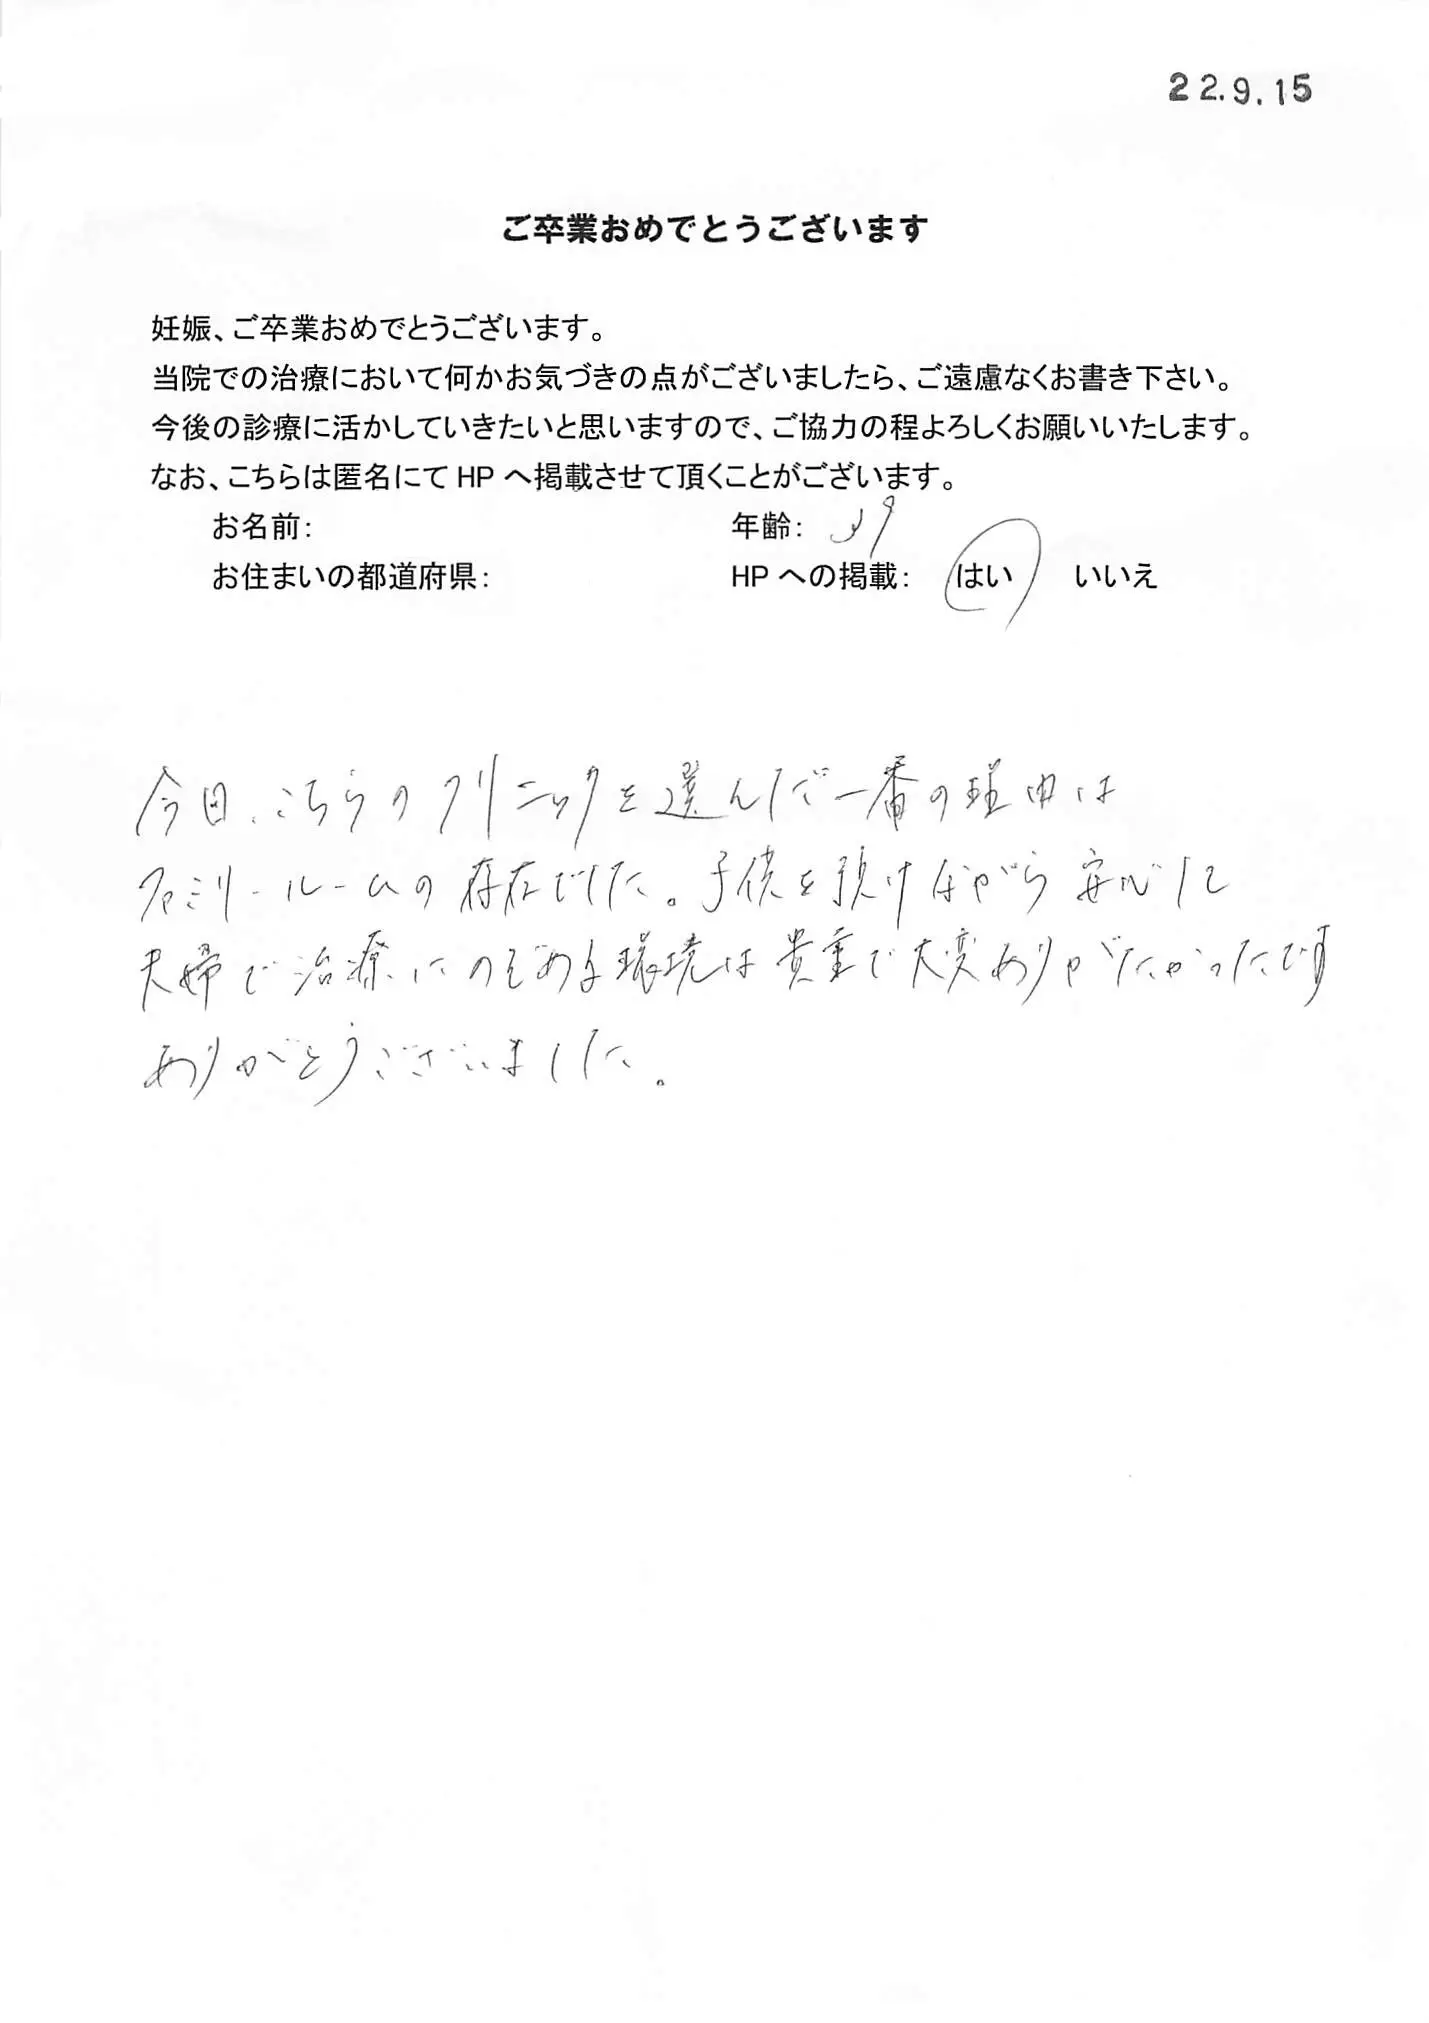 22.9.15
ご卒業おめでとうございます
妊娠、ご卒業おめでとうございます。
当院での治療において何かお気づきの点がございましたら、ご遠慮なくお書き下さい。
今後の診療に活かしていきたいと思いますので、ご協力の程よろしくお願いいたします。
なお、こちらは匿名にて HP へ掲載させて頂くことがございます。
お名前： 年齢： 39
お住まいの都道府県： HP への掲載： はい いいえ
今回、こちらのクリニックを選んだ一番の理由は
ファミリールームの存在でした。子供を預けながら安心して
夫婦で治療にのぞめる環境は貴重で大変ありがたかったです
ありがとうございました。